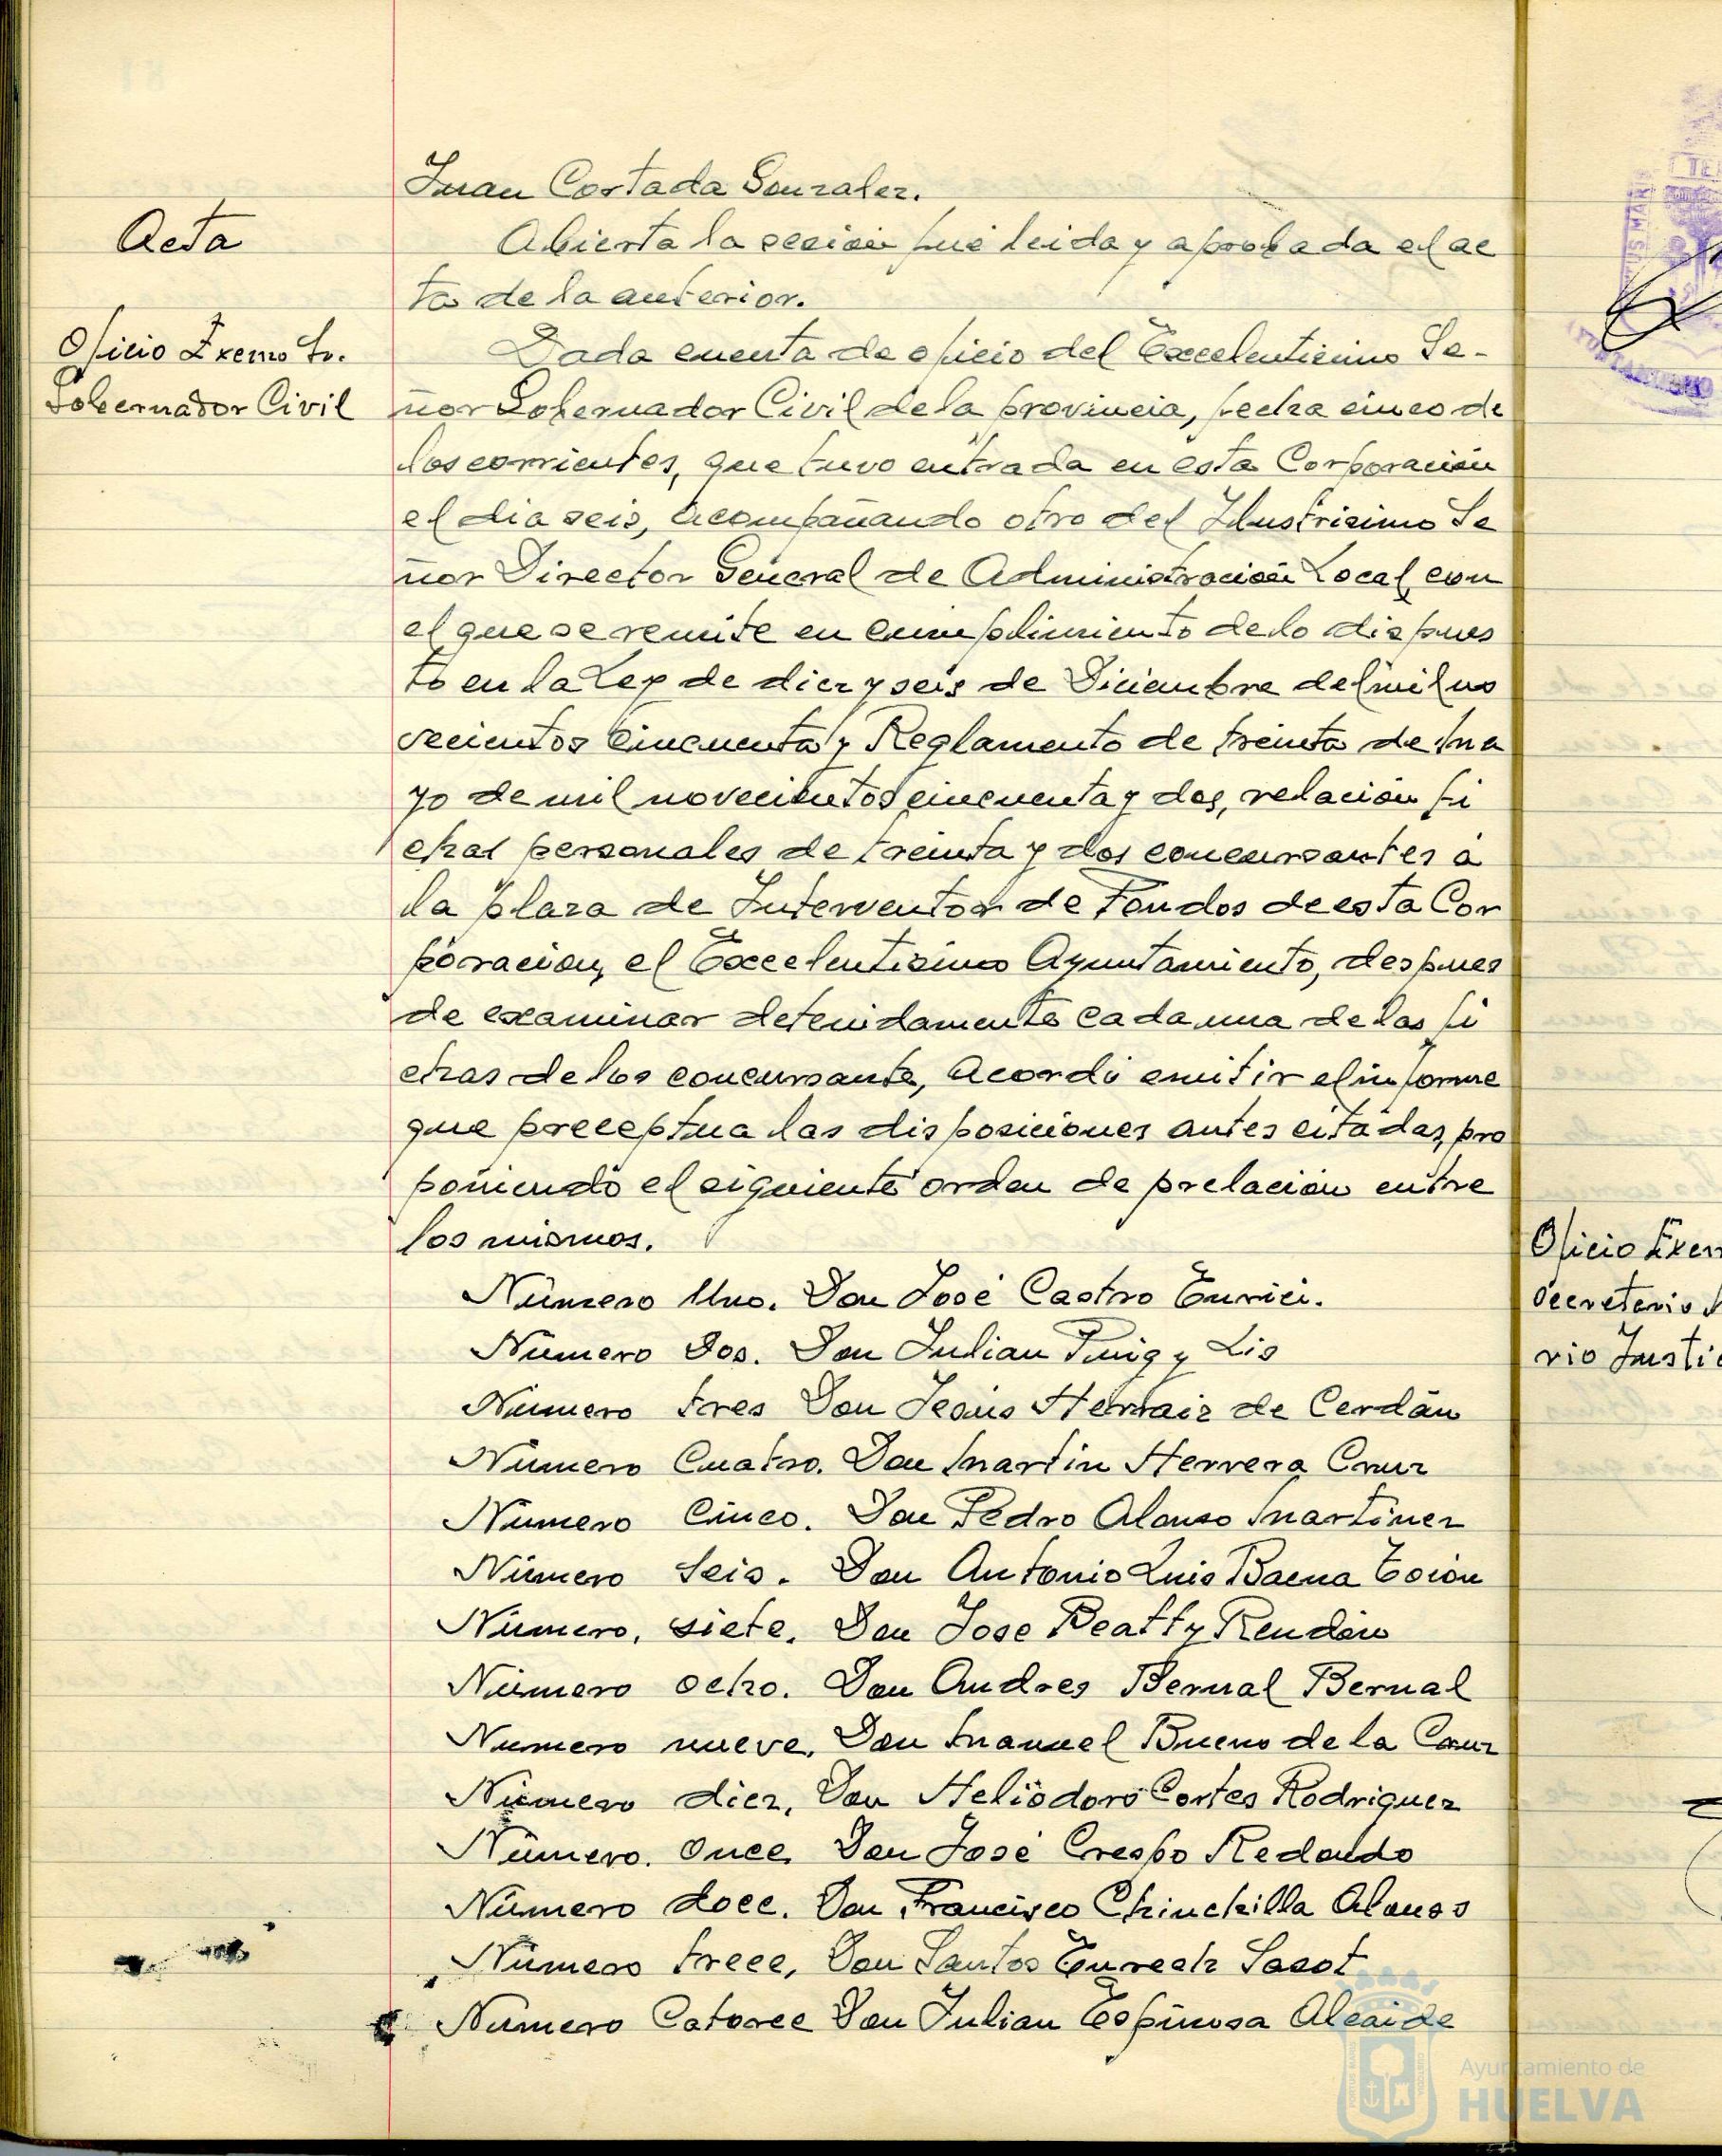 Juan Cortada Gonzalez.
Acta
Abierta la sesión fué leida y aprobada el ac
ta de la anterior.
Oficio Excmo Sr.
Gobernador Civil
Dada cuenta de oficio del Excelentisimo Se-
ñor Gobernador Civil de la provincia, fecha cinco de
los corrientes, que tuvo entrada en esta Corporación
el dia seis, acompañando otro del Ilustrisimo Se
ñor Director General de Administración Local, con
el que se remite en cumplimiento de lo dispues
to en la Ley de diez y seis de Diciembre de mil no
vecientos cincuenta y Reglamento de treinta de Ma
yo de mil novecientos cincuenta y dos, relación fi
chas personales de treinta y dos concursantes a
la plaza de Interventor de Fondos de esta Cor
poracion, el Excelentisimo Ayuntamiento, despues
de examinar detenidamente cada una de las fi
chas de los concursante, acordó emitir el informe
que preceptua las disposiciones antes citadas, pro
poniendo el siguiente orden de prelación entre
los mismos.
Número Uno. Don José Castro Enrici.
Número Dos. Don Julian Puig y Lis
Número tres Don Jesús Herraiz de Cerdán
Número Cuatro. Don Martin Herrera Cruz
Número Cinco. Don Pedro Alonso Martinez
Número Seis. Don Antonio Luis Baena
Número, siete. Don Jose Beatty Rendón
Número ocho. Don Andres Bernal Bernal
Numero nueve. Don Manuel Bueno de la Cruz
Número diez, Don Heliodoro Cortes Rodriguez
Número. Once. Don José Crespo Redondo
Número doce. Don Francisco Chinchilla Alonso
Número trece, Don Santos Enrech Sasot
Número Catorce Don Julian Espinosa Alcaide
Oficio
rio
AYUNTAMIENTO
Ayuntamiento de
HUELVA